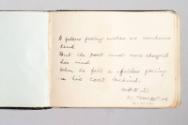 A fellow feeling makes us wondrous
kind
But the poet would have changed
his mind
When he felt a fellow feeling
in his coat behind.